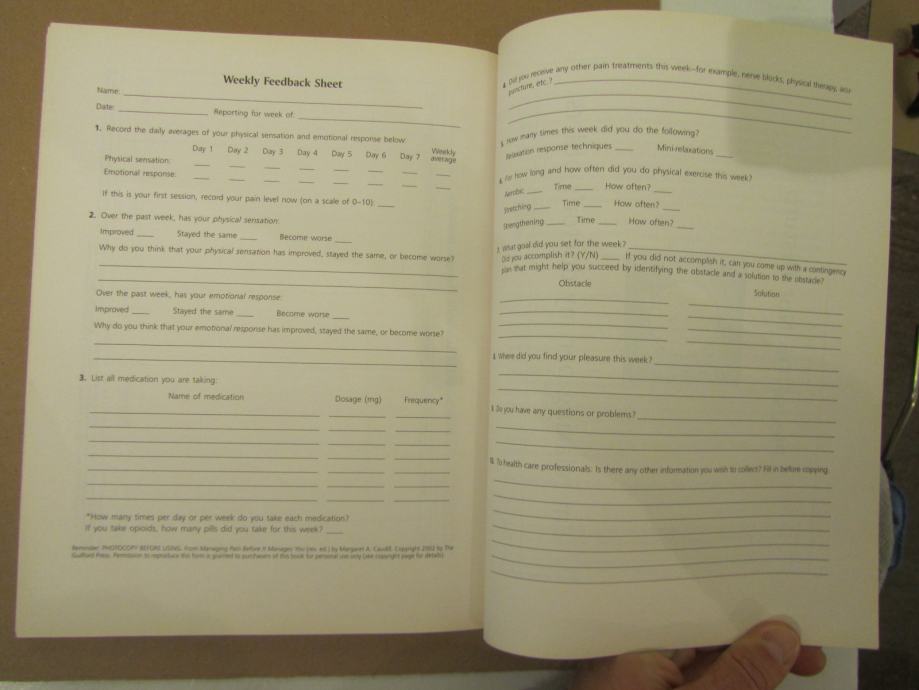 Weekly Feedback Sheet
Name:
Date: Reporting for week of:
1. Record the daily averages of your physical sensation and emotional response below:
Day 1 Day 2 Day 3 Day 4 Day 5 Day 6 Day 7 Weekly average
Physical sensation:
Emotional response:
If this is your first session, record your pain level now (on a scale of 0–10):
2. Over the past week, has your physical sensation:
Improved Stayed the same Become worse
Why do you think that your physical sensation has improved, stayed the same, or become worse?
Over the past week, has your emotional response:
Improved Stayed the same Become worse
Why do you think that your emotional response has improved, stayed the same, or become worse?
3. List all medication you are taking:
Name of medication Dosage (mg) Frequency*
*How many times per day or per week do you take each medication?
If you take opioids, how many pills did you take for this week?
Reminder: PHOTOCOPY BEFORE USING. From Managing Pain Before It Manages You (rev. ed.) by Margaret A. Caudill. Copyright 2002 by The
Guilford Press. Permission to reproduce this form is granted to purchasers of this book for personal use only (see copyright page for details).
4. Did you receive any other pain treatments this week—for example, nerve blocks, physical therapy, acu-
puncture, etc.?
5. How many times this week did you do the following?
Relaxation response techniques Mini-relaxations
6. For how long and how often did you do physical exercise this week?
Aerobic Time How often?
Stretching Time How often?
Strengthening Time How often?
7. What goal did you set for the week?
Did you accomplish it? (Y/N) If you did not accomplish it, can you come up with a contingency
plan that might help you succeed by identifying the obstacle and a solution to the obstacle?
Obstacle Solution
8. Where did you find your pleasure this week?
9. Do you have any questions or problems?
10. To health care professionals: Is there any other information you wish to collect? Fill in before copying.